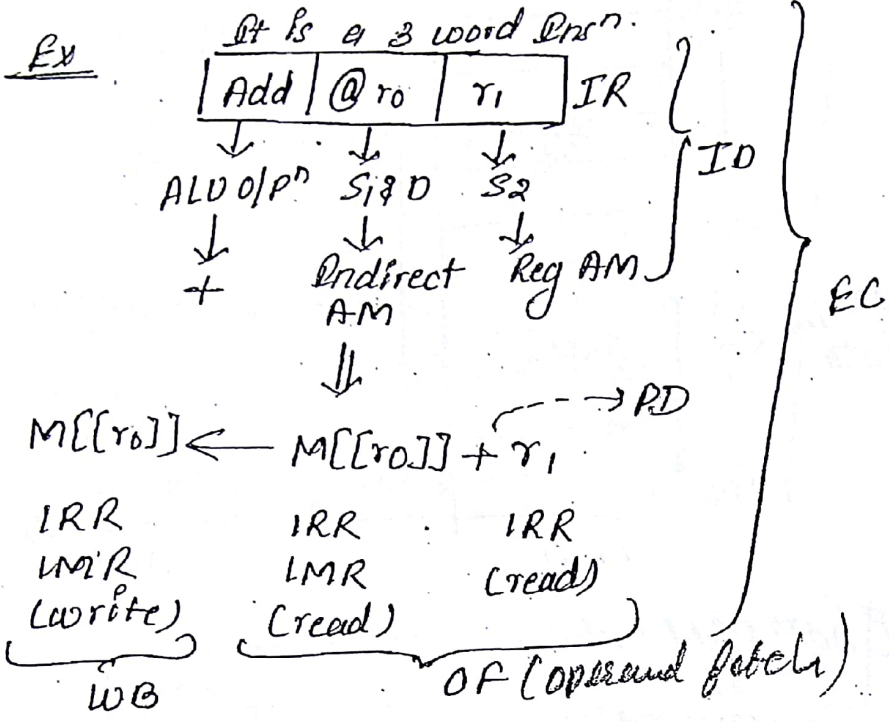 It is a 3 word Insn.
Ex
Add @ r0 r1 IR
ALU O/Pn S1 & D S2
ID
+ Indirect AM Reg AM
EC
P.D
M[[r0]] ← M[[r0]] + r1
1RR 1RR 1RR
1MR 1MR (read)
(write) (read)
WB OF (operand fetch)